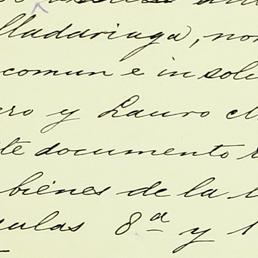 lladariaga, no
comun e in solu
ero y Lauro M
te documento
bienes de la
sulas 8ª y 1